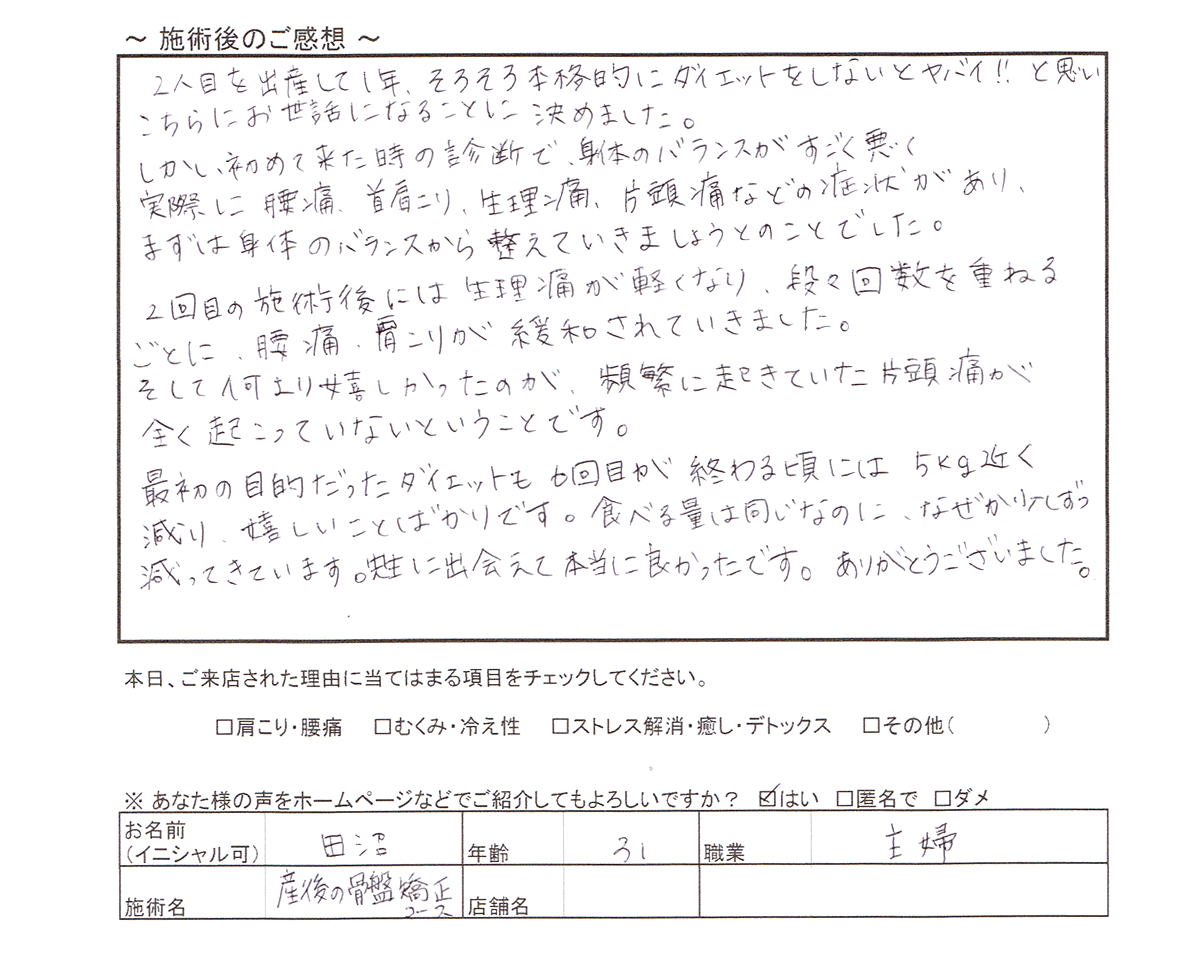 ～ 施術後のご感想 ～
2人目を出産して1年、そろそろ本格的にダイエットをしないとヤバイ!! と思い
こちらにお世話になることに決めました。
しかし、初めて来た時の診断で、身体のバランスがすごく悪く
実際に腰痛、首肩こり、生理痛、片頭痛などの症状があり、
まずは身体のバランスから整えていきましょうとのことでした。
2回目の施術後には生理痛が軽くなり、段々回数を重ねる
ごとに、腰痛、肩こりが緩和されていきました。
そして何より嬉しかったのが、頻繁に起きていた片頭痛が
全く起こっていないということです。
最初の目的だったダイエットも6回目が終わる頃には5kg近く
減り、嬉しいことばかりです。食べる量は同じなのに、なぜか少しずつ
減ってきています。先生に出会えて本当に良かったです。ありがとうございました。
本日、ご来店された理由に当てはまる項目をチェックしてください。
□肩こり・腰痛 □むくみ・冷え性 □ストレス解消・癒し・デトックス □その他( )
※ あなた様の声をホームページなどでご紹介してもよろしいですか？ ☑はい □匿名で □ダメ
お名前
(イニシャル可) 田沼 年齢 31 職業 主婦
施術名 産後の骨盤矯正コース 店舗名